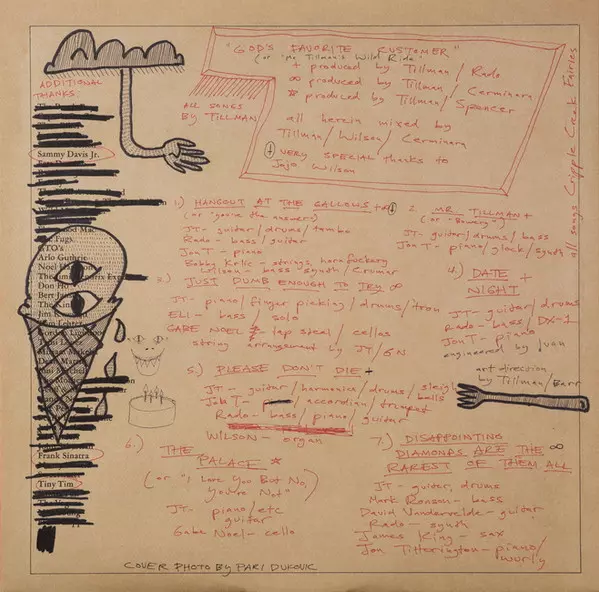 "GOD'S FAVORITE KUSTOMER"
(or "Mr. Tillman's Wild Ride"
+ produced by Tillman/Rado
∞ produced by Tillman/Cerminara
* produced by Tillman/Spencer
all herein mixed by
Tillman/Wilson/Cerminara
VERY SPECIAL thanks to
JoJo Wilson
ALL SONGS
BY TILLMAN
all songs Cripple Creek Fairies
ADDITIONAL
THANKS:
Sammy Davis Jr.
Fugs
Arlo Guthrie
Noel
Don Ho
Frank Sinatra
Tiny Tim
1.) HANGOUT AT THE GALLOWS +
(or "you're the answer")
JT- guitar/drums/tambo
Rado- bass/guitar
Jon T- piano
Bobby Krlic- strings, horn
Wilson- bass synth/Crumar
2. MR. TILLMAN +
(or -Bowery-)
JT- guitar/drums/bass
Jon T- piano/glock/synth
3.) JUST DUMB ENOUGH TO TRY ∞
JT- piano/finger picking/drums/tron
ELI- bass/solo
GABE NOEL * lap steel/cellos
string arrangement by JT/GN
4.) DATE +
NIGHT
JT- guitar/drums
Rado- bass/DX-1
Jon T- piano
engineered by Ivan
art direction
by Tillman/Barr
5.) PLEASE DON'T DIE +
JT- guitar/harmonica/drums/sleigh
bells
Jon T- /accordian/trumpet
Rado- bass/piano/guitar
WILSON- organ
6.) THE
PALACE *
(or "I Love You But No,
You're Not")
JT- piano/etc
guitar
Gabe Noel- cello
7.) DISAPPOINTING
DIAMONDS ARE THE ∞
RAREST OF THEM ALL
JT- guitar, drums
Mark Ronson- bass
David Vandervelde- guitar
Rado- synth
James King- sax
Jon Titterington- piano/
wurly
COVER PHOTO BY PARI DUKOVIC